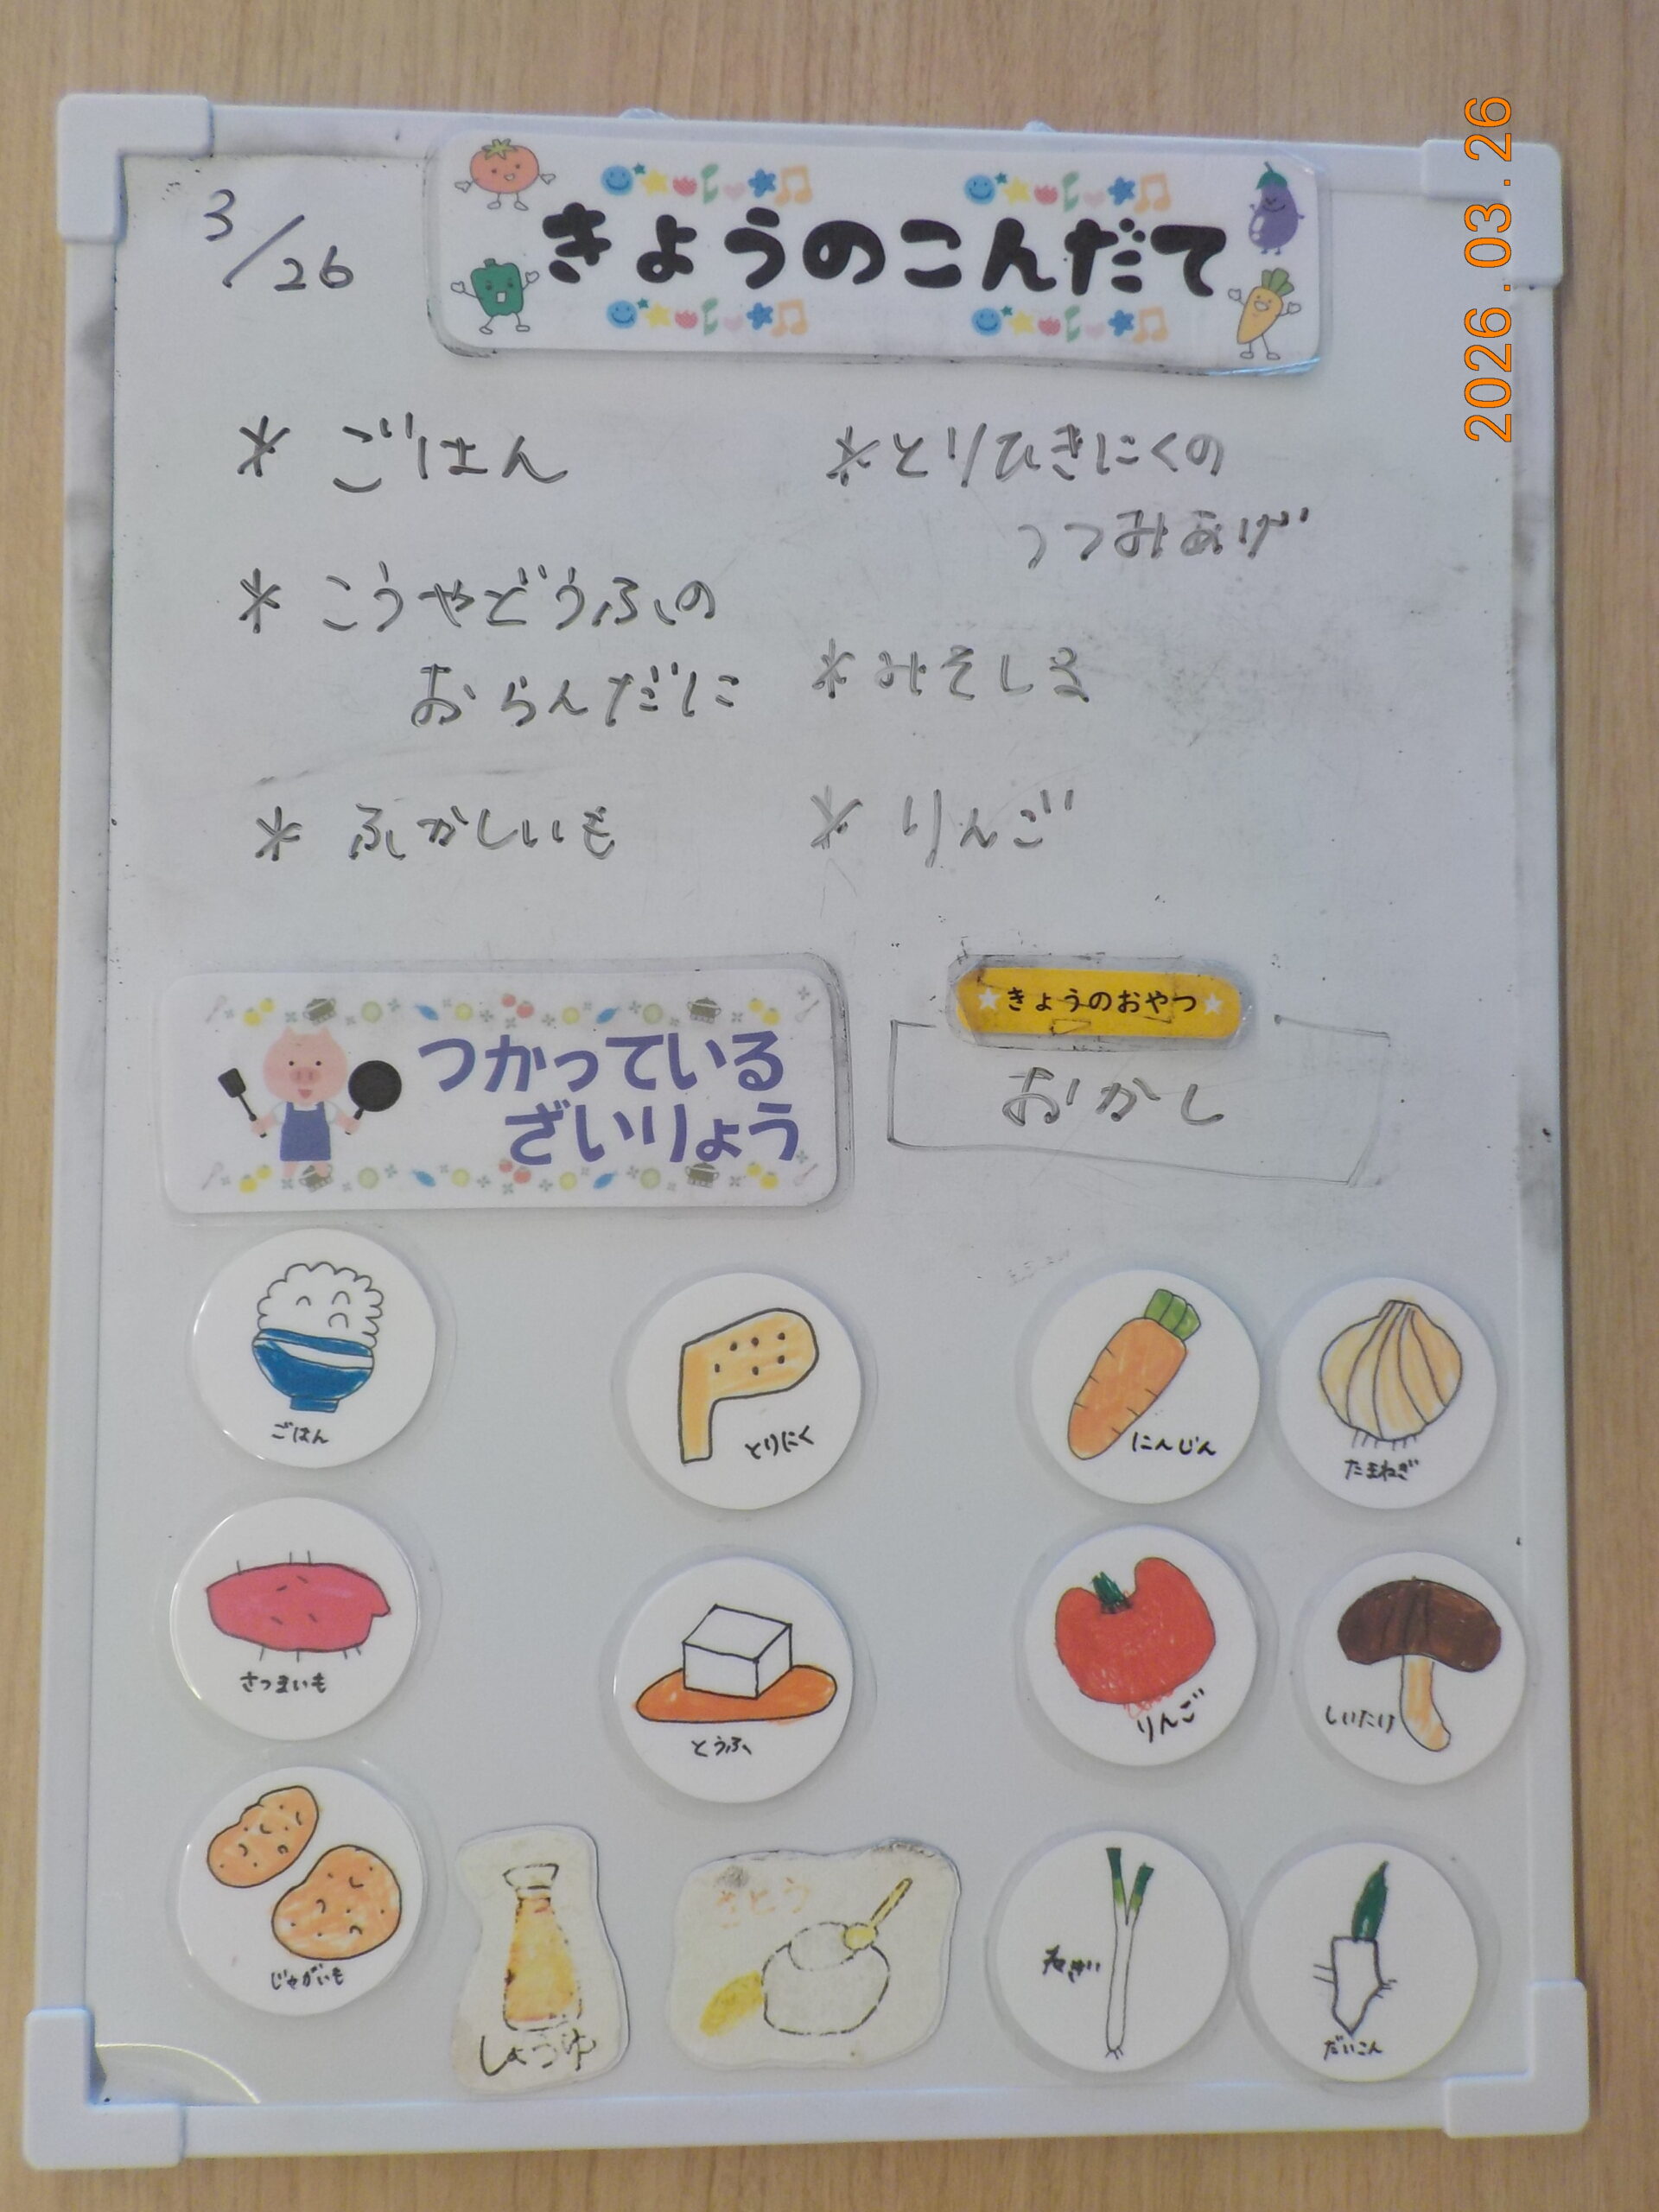 2026.03.26
3/26
きょうのこんだて
* ごはん
* こうやどうふの
おらんだに
* ふかしいも
* とりひきにくの
つつみあげ
* みそしる
* りんご
つかっている
ざいりょう
きょうのおやつ
おかし
ごはん
とりにく
にんじん
たまねぎ
さつまいも
とうふ
りんご
しいたけ
じゃがいも
しょうゆ
さとう
ねぎ
だいこん